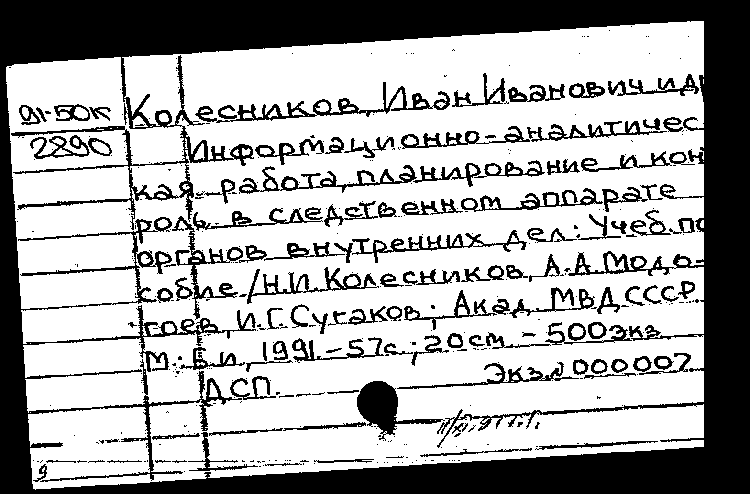 91-50К Колесников, Иван Иванович и др
2290 Информационно-аналитичес
кая работа, планирование и кон
роль в следственном аппарате
органов внутренних дел: Учеб. по
собие / Н.И. Колесников, А.А. Модо-
гоев, И.Г. Сугаков; Акад. МВД СССР.
М.: Б.и., 1991. - 57с.; 20см - 500экз
ДСП. Экз.№000007
9